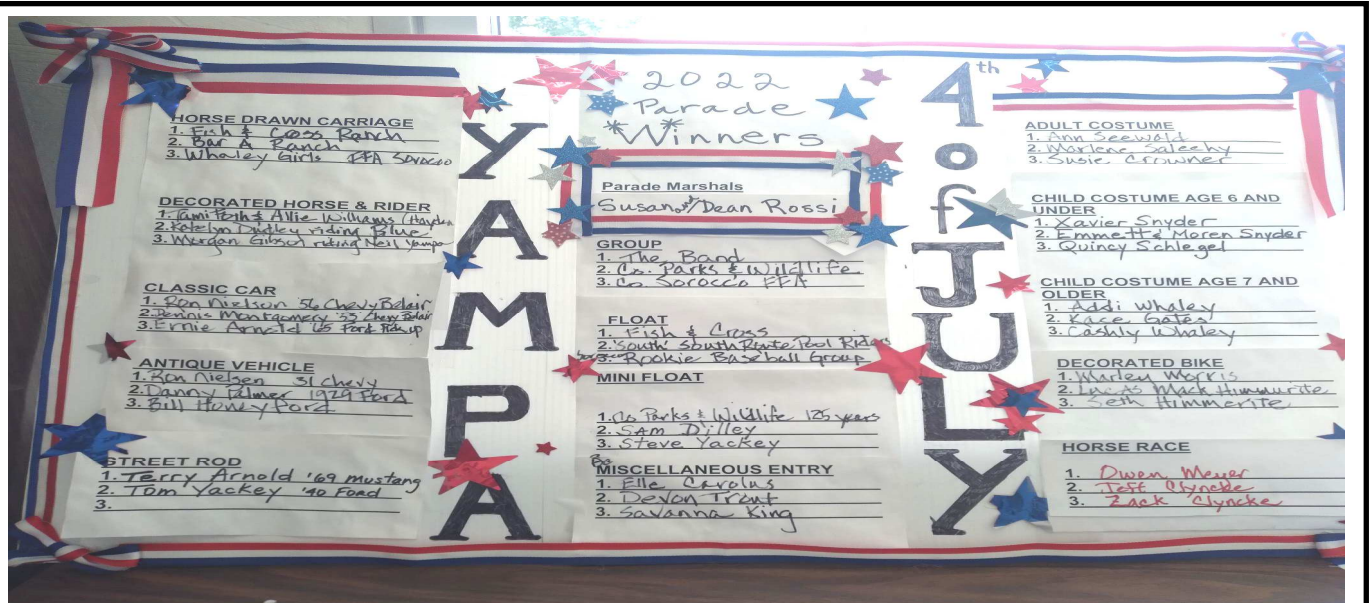 HORSE DRAWN CARRIAGE
1. Fish & Cross Ranch
2. Bar A Ranch
3. Whaley Girls FFA Sorocco
DECORATED HORSE & RIDER
1. Tami & Allie Williams (Hayden
2. Katelyn Dudley riding Blue
3. Morgan Gibson riding Neil Yampa
CLASSIC CAR
1. Ron Nielson 56 Chevy Belair
2. Dennis Montgomery '55 Chevy Belair
3. Ernie Arnold '65 Ford Pickup
ANTIQUE VEHICLE
1. Ron Nielsen 31 Chevy
2. Danny Palmer 1929 Ford
3. Bill Ford
STREET ROD
1. Terry Arnold '69 mustang
2. Tom Yackey '40 Ford
3.
YAMPA
2022
Parade
*Winners*
Parade Marshals
Susan and Dean Rossi
GROUP
1. The Band
2. Co. Parks & Wildlife
3. Co. Sorocco FFA
FLOAT
1. Fish & Cross
2. 'South' South Route Pool Riders
3. Rookie Baseball Group
MINI FLOAT
1. Co Parks & Wildlife 125 years
2. Sam D'lley
3. Steve Yackey
MISCELLANEOUS ENTRY
1. Elle Carolus
2. Devon Trout
3. Savanna King
4th of JULY
ADULT COSTUME
1. Ann Seewald
2. Marlene Saleehy
3. Susie Crowner
CHILD COSTUME AGE 6 AND
UNDER
1. Xavier Snyder
2. Emmett & Maren Snyder
3. Quincy Schlegel
CHILD COSTUME AGE 7 AND
OLDER
1. Addi Whaley
2. Kace Gates
3. Cashly Whaley
DECORATED BIKE
1. Marley Morris
2. Mack Himmurite
3. Seth Himmerite
HORSE RACE
1. Owen Meyer
2. Jeff Clyncke
3. Zack Clyncke